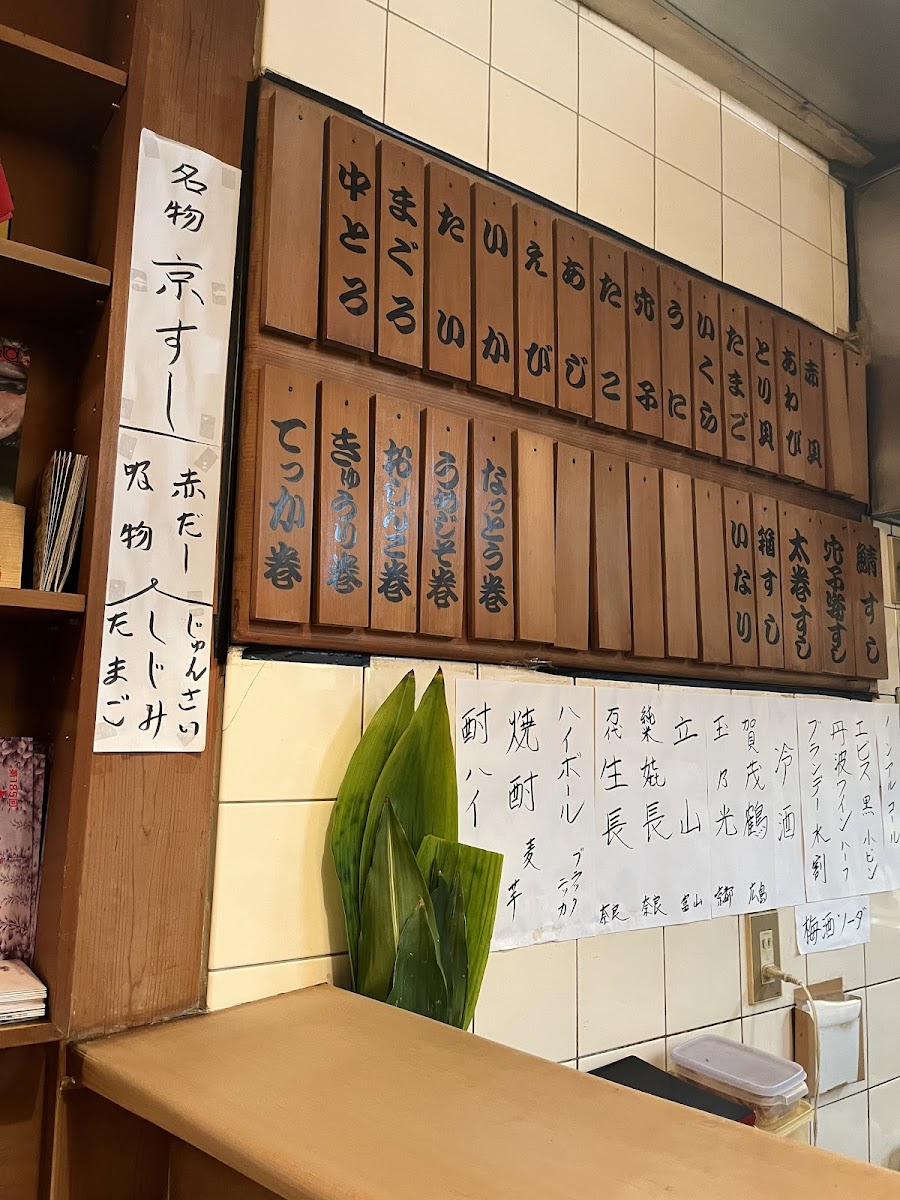 名物 京すし
赤だー
吸物
じゅんさい
しじみ
たまご
赤貝
あわび
とり貝
たまご
いくら
うに
穴子
たこ
あじ
えび
いか
たい
まぐろ
中とろ
鯖すし
太巻すし
箱すし
いなり
なっとう巻
うめじそ巻
おしんこ巻
きゅうり巻
てっか巻
ノンアルコール
エビス 黒 小ビン
丹波ワイン ハーフ
ブランデー水割
冷酒
賀茂鶴 広島
玉乃光 京都
立山 富山
生長 奈良
ハイボール ブラックニッカ
焼酎 麦 芋
酎ハイ
梅酒ソーダ
第185回